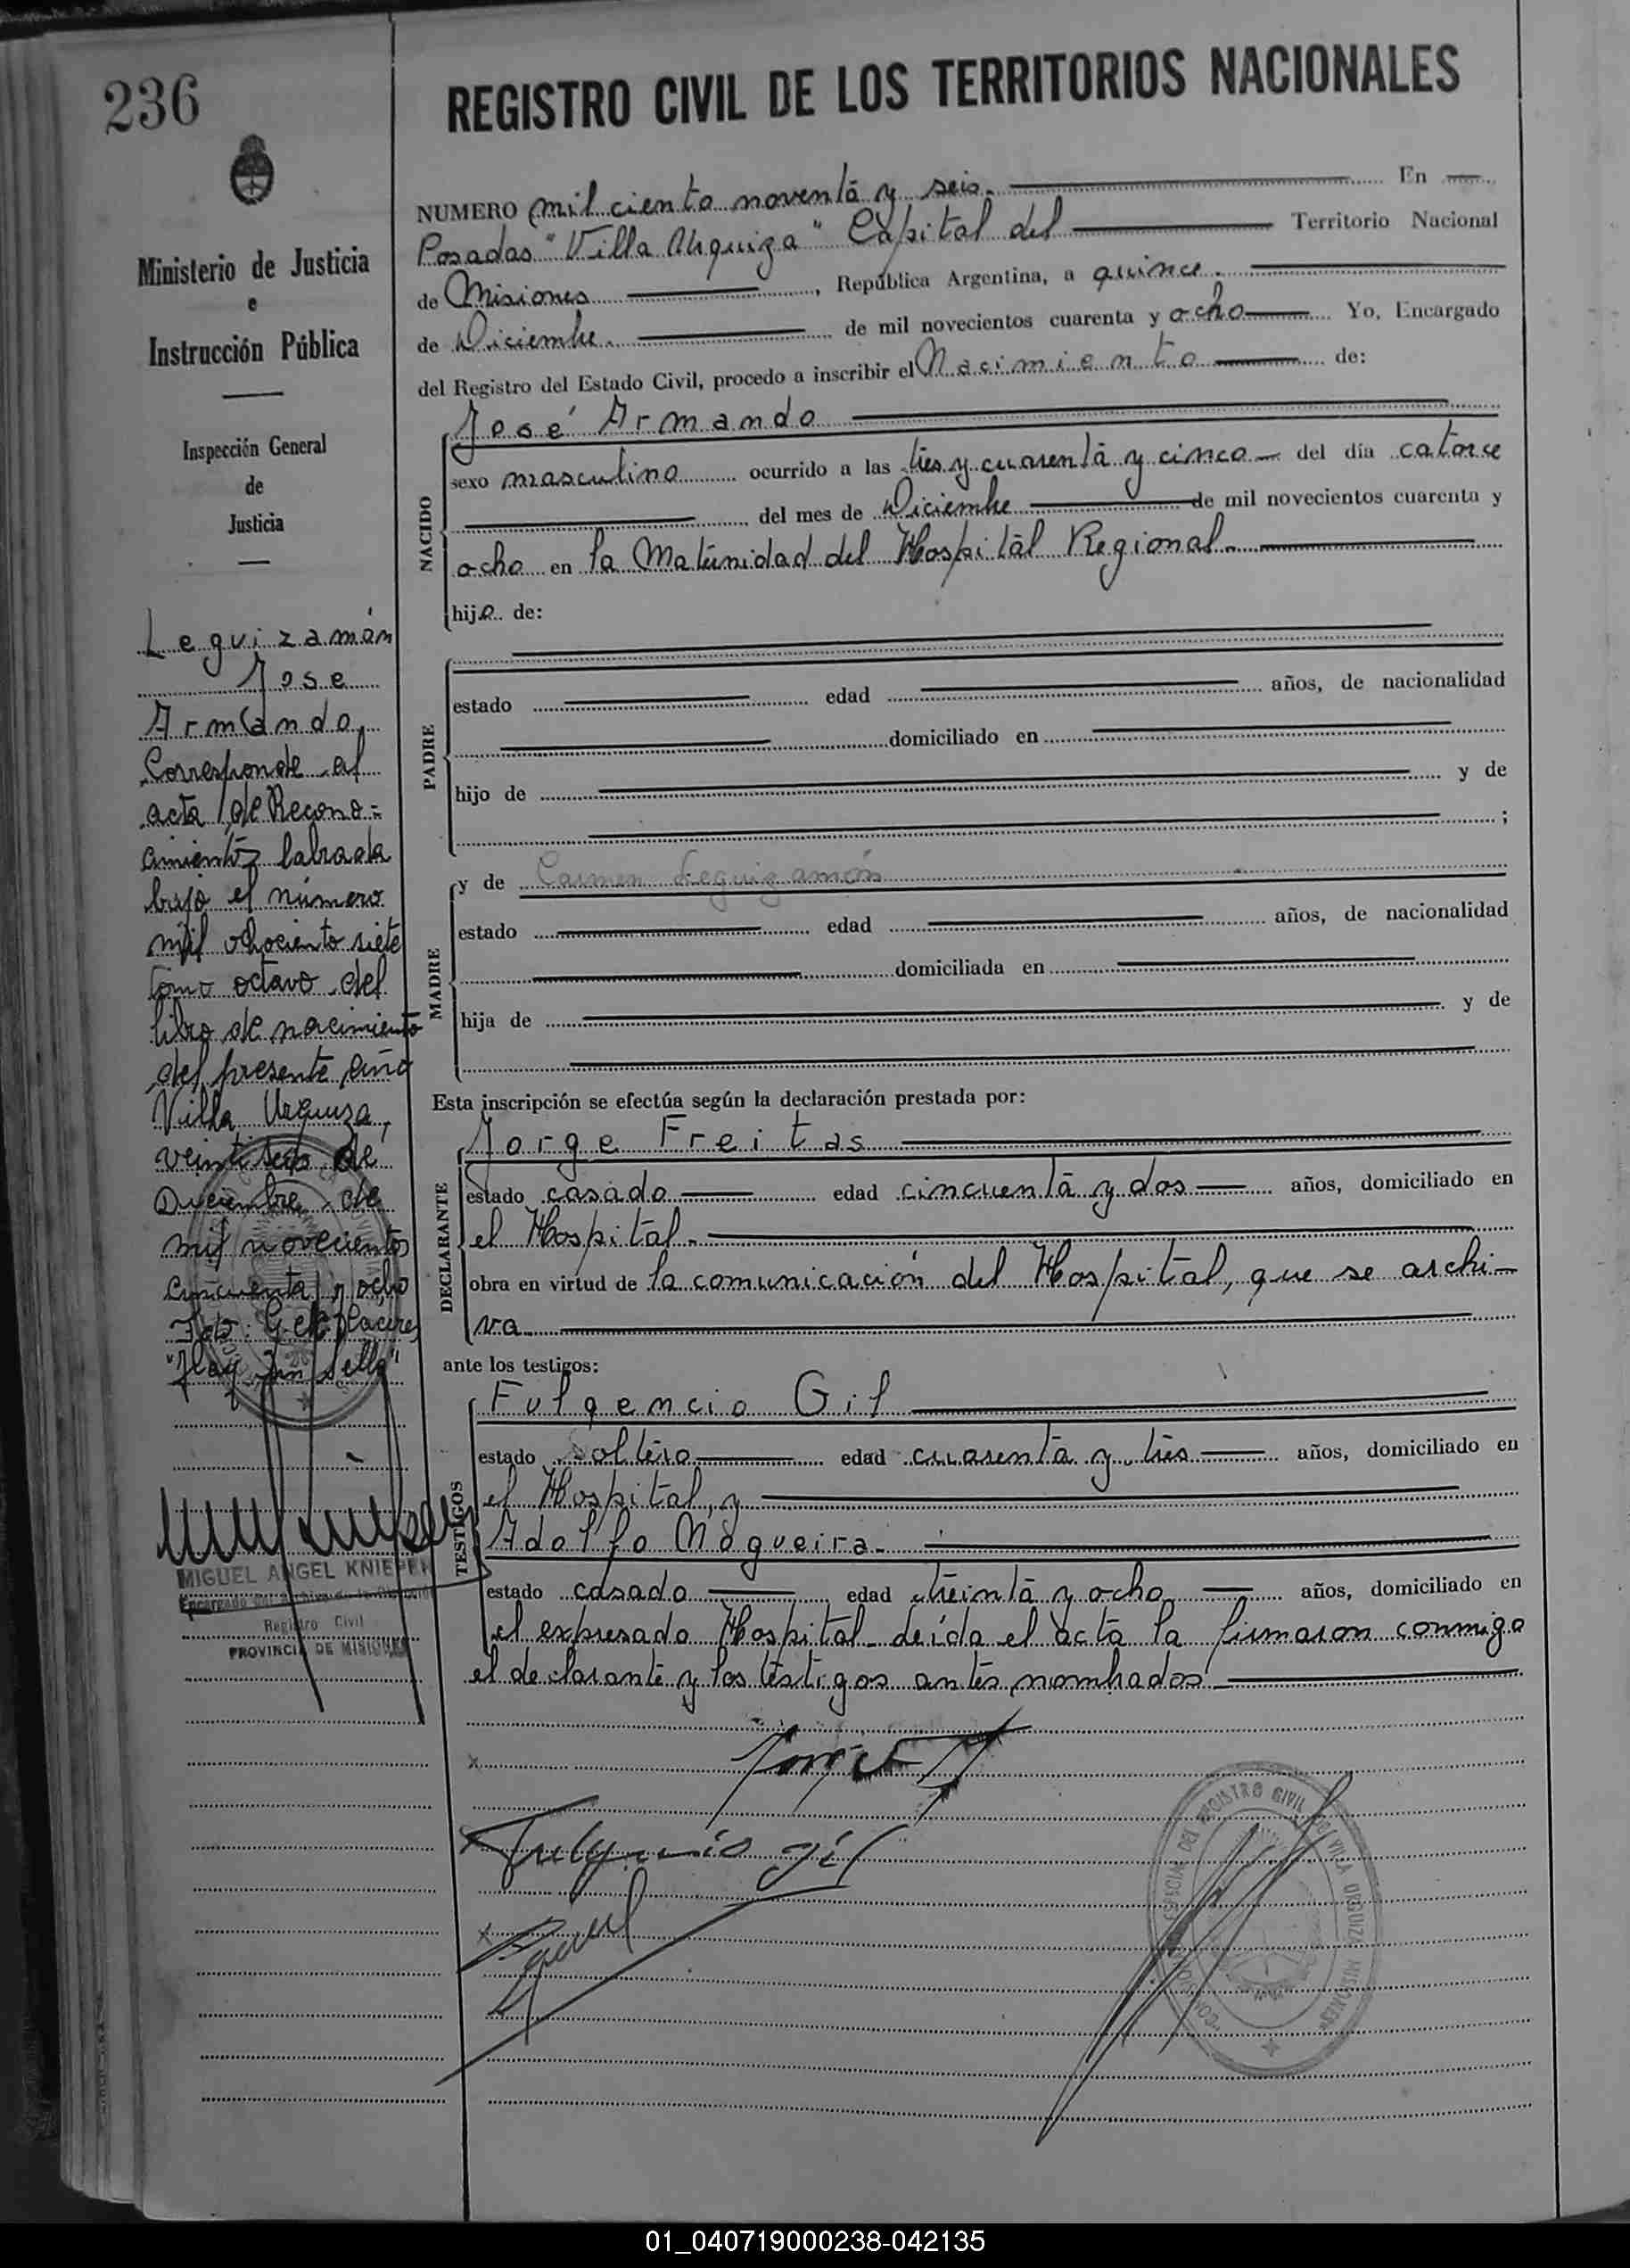 236
REGISTRO CIVIL DE LOS TERRITORIOS NACIONALES
Ministerio de Justicia
e
Instrucción Pública
Inspección General
de
Justicia
Leguizamón
Jose
Armando
Corresponde al
acta de Recono=
cimiento labrada
bajo el número
mil ochociento siete
tomo octavo del
libro de nacimiento
del presente año
Villa Urquiza,
de
Diciembre de
mil novecientos
cincuenta y ocho
Fdo:
"Hay un sello"
MIGUEL ANGEL KNIEPEN
Registro Civil
PROVINCIA DE MISIONES
NUMERO mil ciento noventa y seis. En
Posadas "Villa Urquiza" Capital del Territorio Nacional
de Misiones, República Argentina, a quince.
de Diciembre. de mil novecientos cuarenta y ocho Yo, Encargado
del Registro del Estado Civil, procedo a inscribir el Nacimiento de:
NACIDO
José Armando
sexo masculino ocurrido a las tres y cuarenta y cinco del día catorce
del mes de Diciembre de mil novecientos cuarenta y
ocho en la Maternidad del Hospital Regional.
hijo de:
PADRE
estado edad años, de nacionalidad
domiciliado en
hijo de y de
;
MADRE
y de Carmen Leguizamón
estado edad años, de nacionalidad
domiciliada en
hija de y de
Esta inscripción se efectúa según la declaración prestada por:
DECLARANTE
Jorge Freitas
estado casado edad cincuenta y dos años, domiciliado en
el Hospital.
obra en virtud de la comunicación del Hospital, que se archi-
va
ante los testigos:
TESTIGOS
Fulgencio Gil
estado soltero edad cuarenta y tres años, domiciliado en
el Hospital, y
Adolfo Nogueira.
estado casado edad treinta y ocho años, domiciliado en
el expresado Hospital leída el acta la firmaron conmigo
el declarante y los testigos antes nombrados
Fulgencio Gil
REGISTRO CIVIL DE VILLA URQUIZA MISIONES
01_040719000238-042135